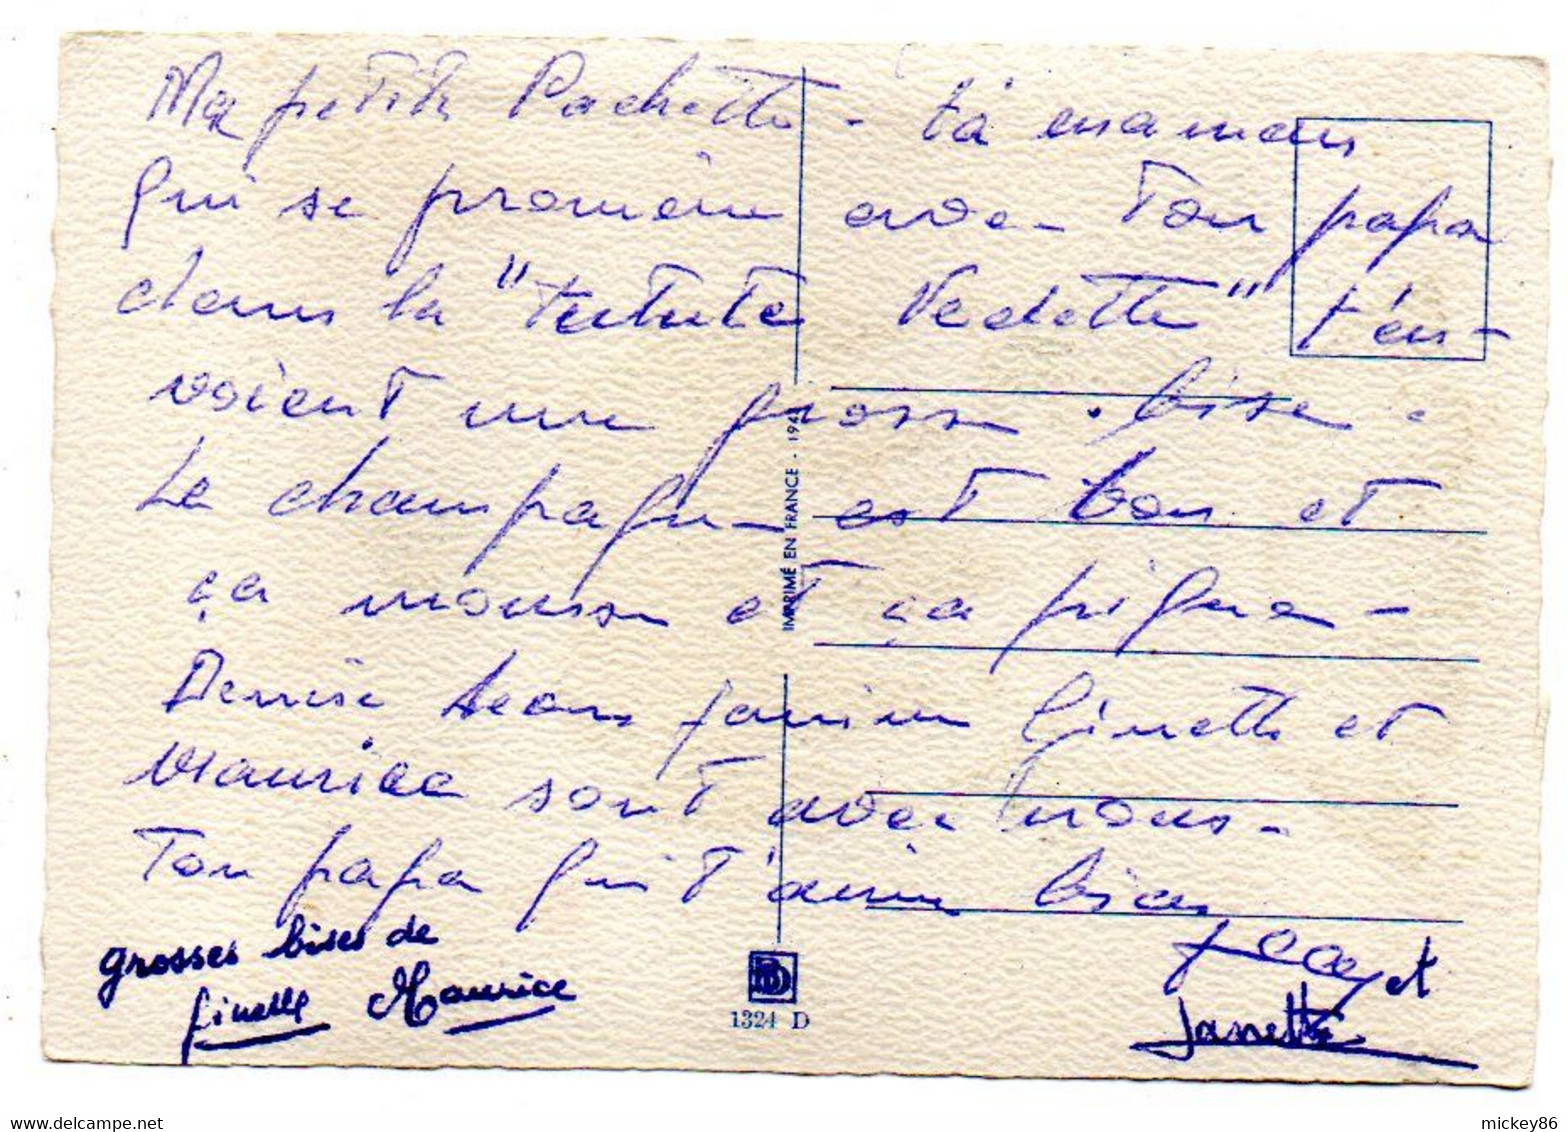 Ma petite Pachette - ta maman
qui se promène avec ton papa
dans la "tutute Vedette" t'en-
voient une grosse bise.
Le champagne est bon et
ça mousse et ça pique -
Denise Jeanine Ginette et
Maurice sont avec nous -
Ton papa qui t'aime bien
grosses bises de
Ginette Maurice
et
Jannette
IMPRIMÉ EN FRANCE - 194
1324 D
mickey86